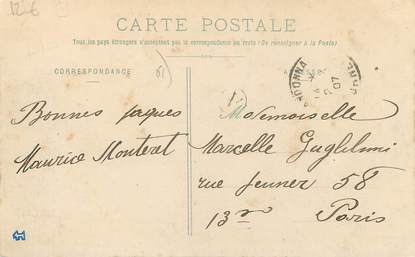 12€
CARTE POSTALE
Tous les pays étrangers n'acceptent pas la correspondance au recto (Se renseigner à la Poste)
CORRESPONDANCE
Bonnes pâques
Maurice Monteret
Mademoiselle
Marcelle Guglielmi
rue Jenner 58
13me
Paris
07